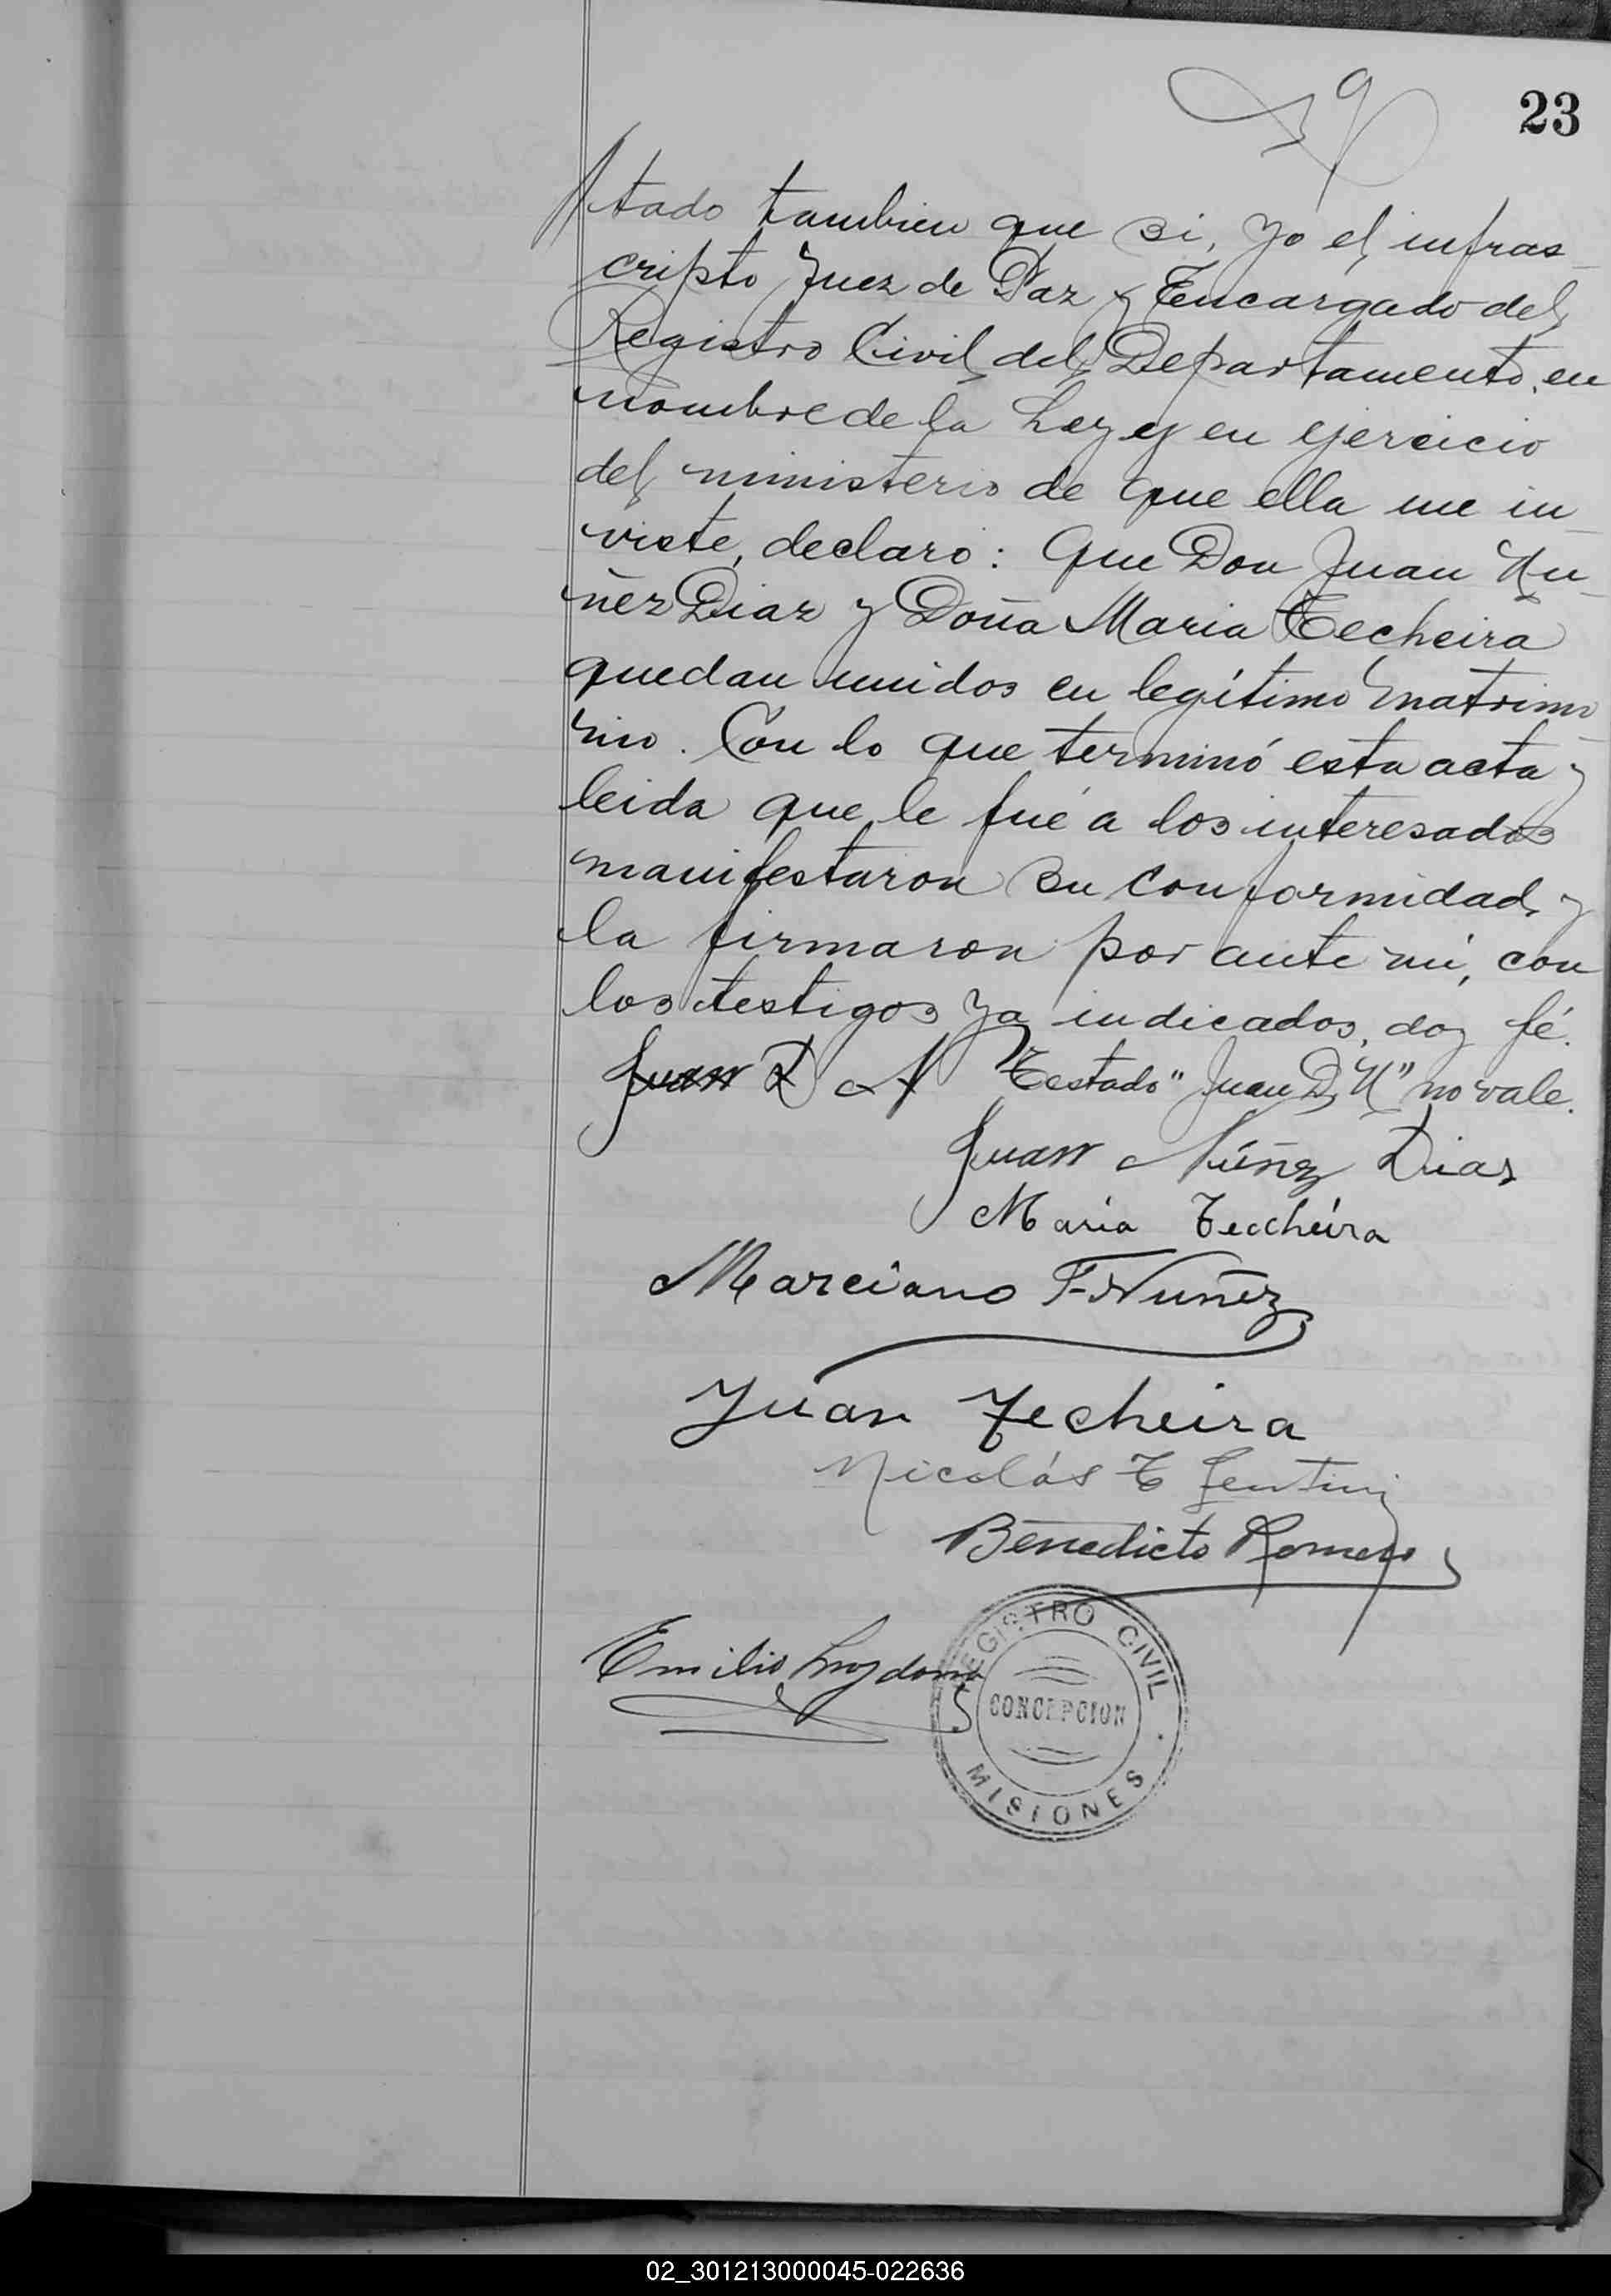 23
tado tambien que si, yo el infras_
cripto Juez de Paz y Encargado del
Registro Civil del Departamento, en
nombre de la Ley y en ejercicio
del ministerio de que ella me in_
viste, declaro: Que Don Juan Nu_
ñez Diaz y Doña Maria Techeira
quedan unidos en legítimo matrimo_
nio. Con lo que terminó esta acta y
leida que le fué a los interesados
manifestaron su conformidad y
la firmaron por ante mi, con
los testigos ya indicados, doy fé.
Juan D N Testado "Juan D, N" no vale.
Juan Núñez Dias
Maria Techeira
Marciano F. Nuñez
Juan Techeira
Nicolás T
Benedicto Romero
Emilio
REGISTRO CIVIL
CONCEPCION
MISIONES
02_301213000045-022636